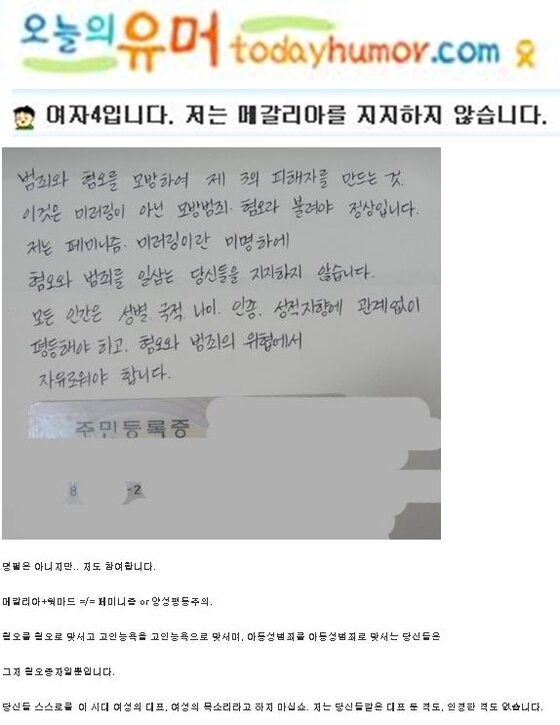 오늘의유머 todayhumor.com
여자4입니다. 저는 메갈리아를 지지하지 않습니다.
범죄와 혐오를 모방하여 제 3의 피해자를 만드는 것.
이것은 미러링이 아닌 모방범죄·혐오라 불려야 정상입니다.
저는 페미니즘·미러링이란 미명하에
혐오와 범죄를 일삼는 당신들을 지지하지 않습니다.
모든 인간은 성별. 국적. 나이. 인종. 성적지향에 관계없이
평등해야 하고, 혐오와 범죄의 위협에서
자유로워야 합니다.
주민등록증
8 -2
명필은 아니지만.. 저도 참여합니다.
메갈리아+워마드 =/= 페미니즘 or 양성평등주의.
혐오를 혐오로 맞서고 고인능욕을 고인능욕으로 맞서며, 아동성범죄를 아동성범죄로 맞서는 당신들은
그저 혐오종자일뿐입니다.
당신들 스스로를 이 시대 여성의 대표, 여성의 목소리라고 하지 마십쇼. 저는 당신들같은 대표 둔 적도, 인정한 적도 없습니다.